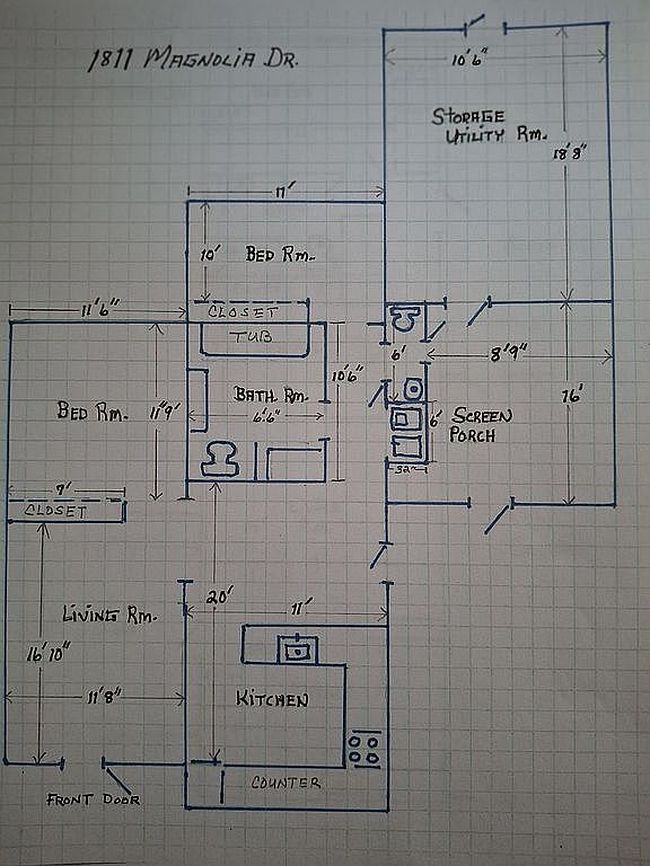 1811 MAGNOLIA DR.
10'6"
STORAGE
UTILITY RM.
18'8"
11'
10'
BED RM.
CLOSET
TUB
11'6"
6'
8'9"
10'6"
BED RM.
11'9'
BATH RM.
6'6"
16'
6'
SCREEN
PORCH
32"
7'
CLOSET
20'
11'
LIVING RM.
16'10"
11'8"
KITCHEN
COUNTER
FRONT DOOR